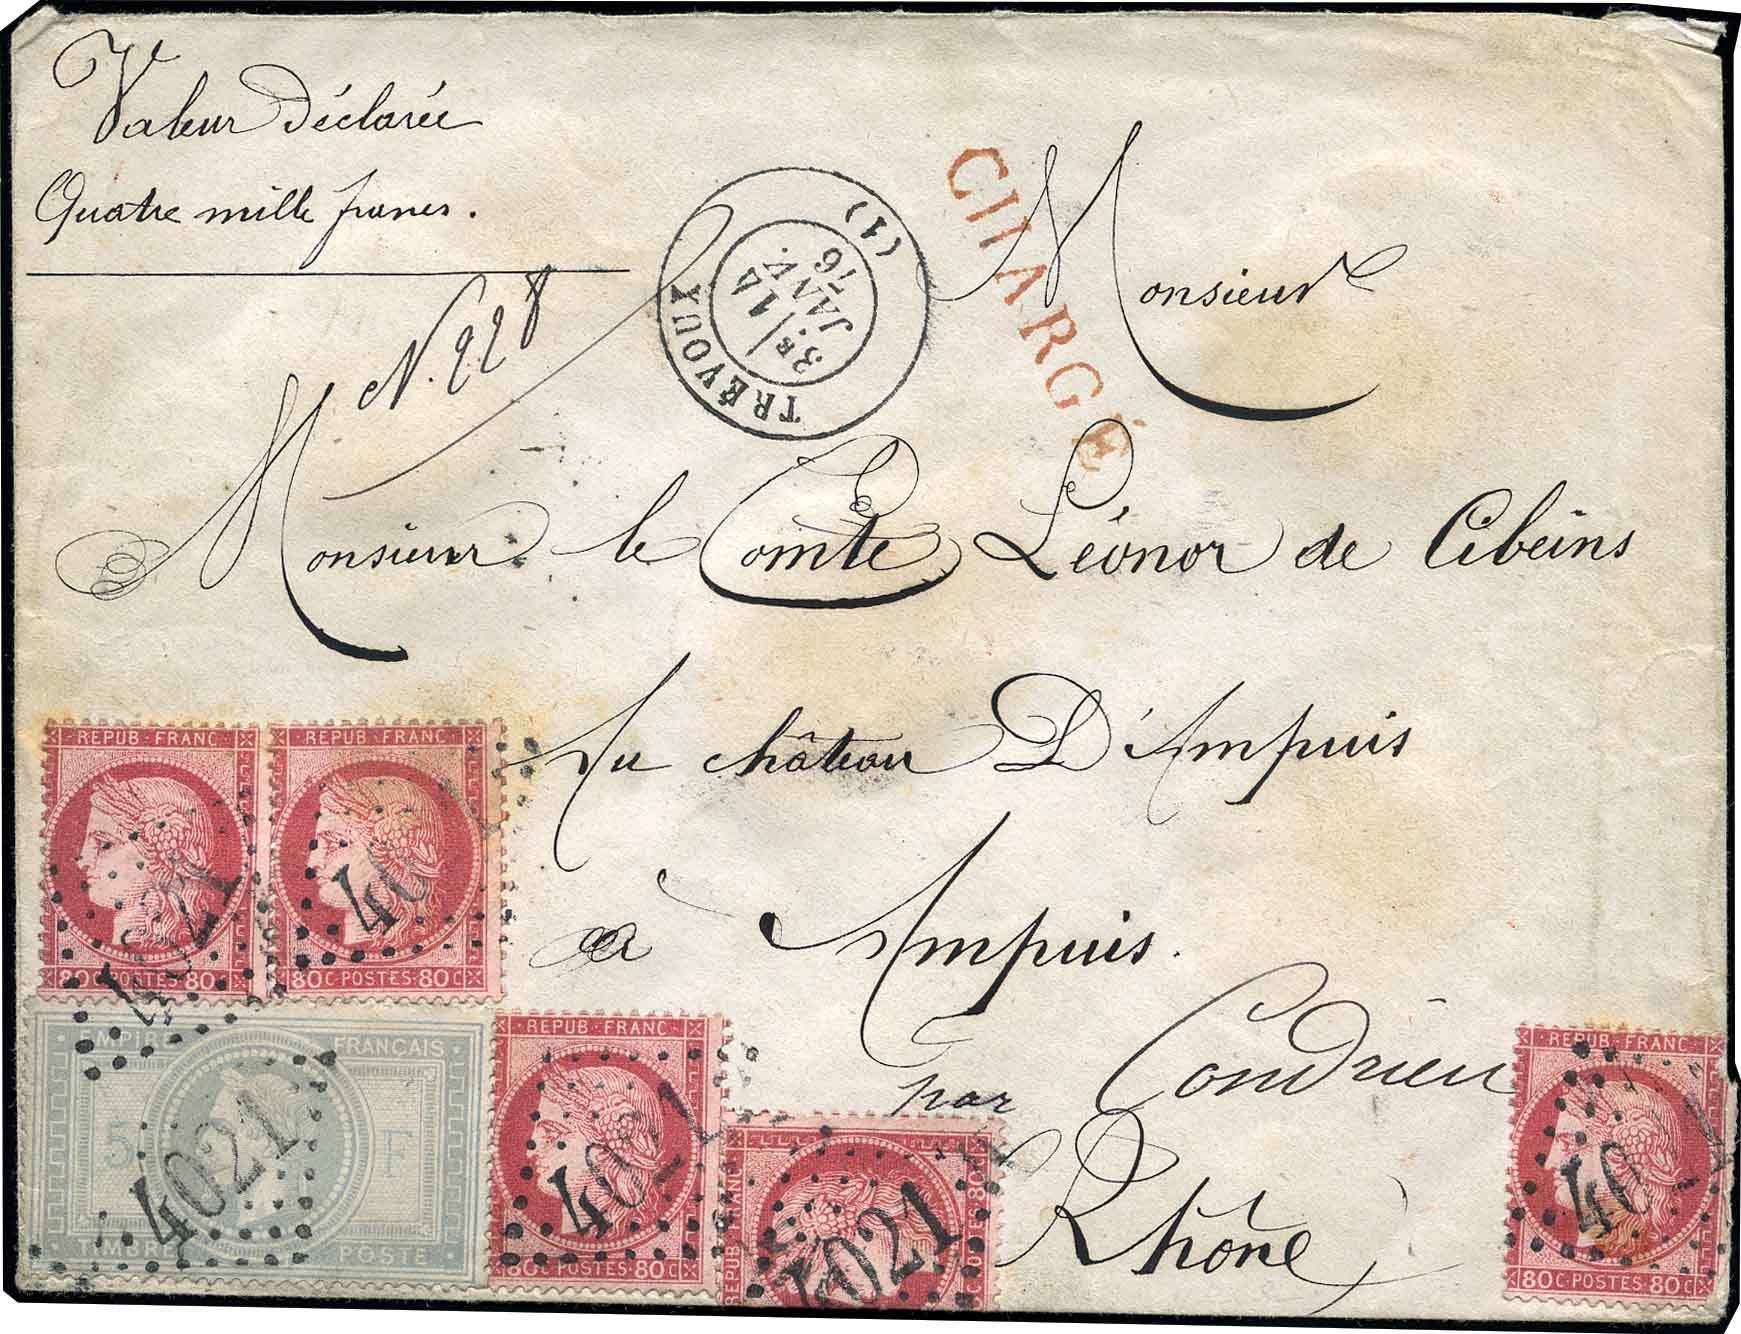 Valeur Déclarée
Quatre mille francs.
N. 228
TRÉVOUX (1)
3E / 14
JANV.
76
CHARGÉ
Monsieur
Monsieur le Comte Léonor de Cibeins
Au château D'Ampuis
à Ampuis.
par Condrieu
Rhône
REPUB·FRANC
80C·POSTES·80C
4021
REPUB·FRANC
80C·POSTES·80C
40
EMPIRE FRANÇAIS
5 F
TIMBRE POSTE
4021
REPUB·FRANC
80C·POSTES·80C
4021
REPUB·FRANC
4021
REPUB·FRANC
80C·POSTES·80C
4021